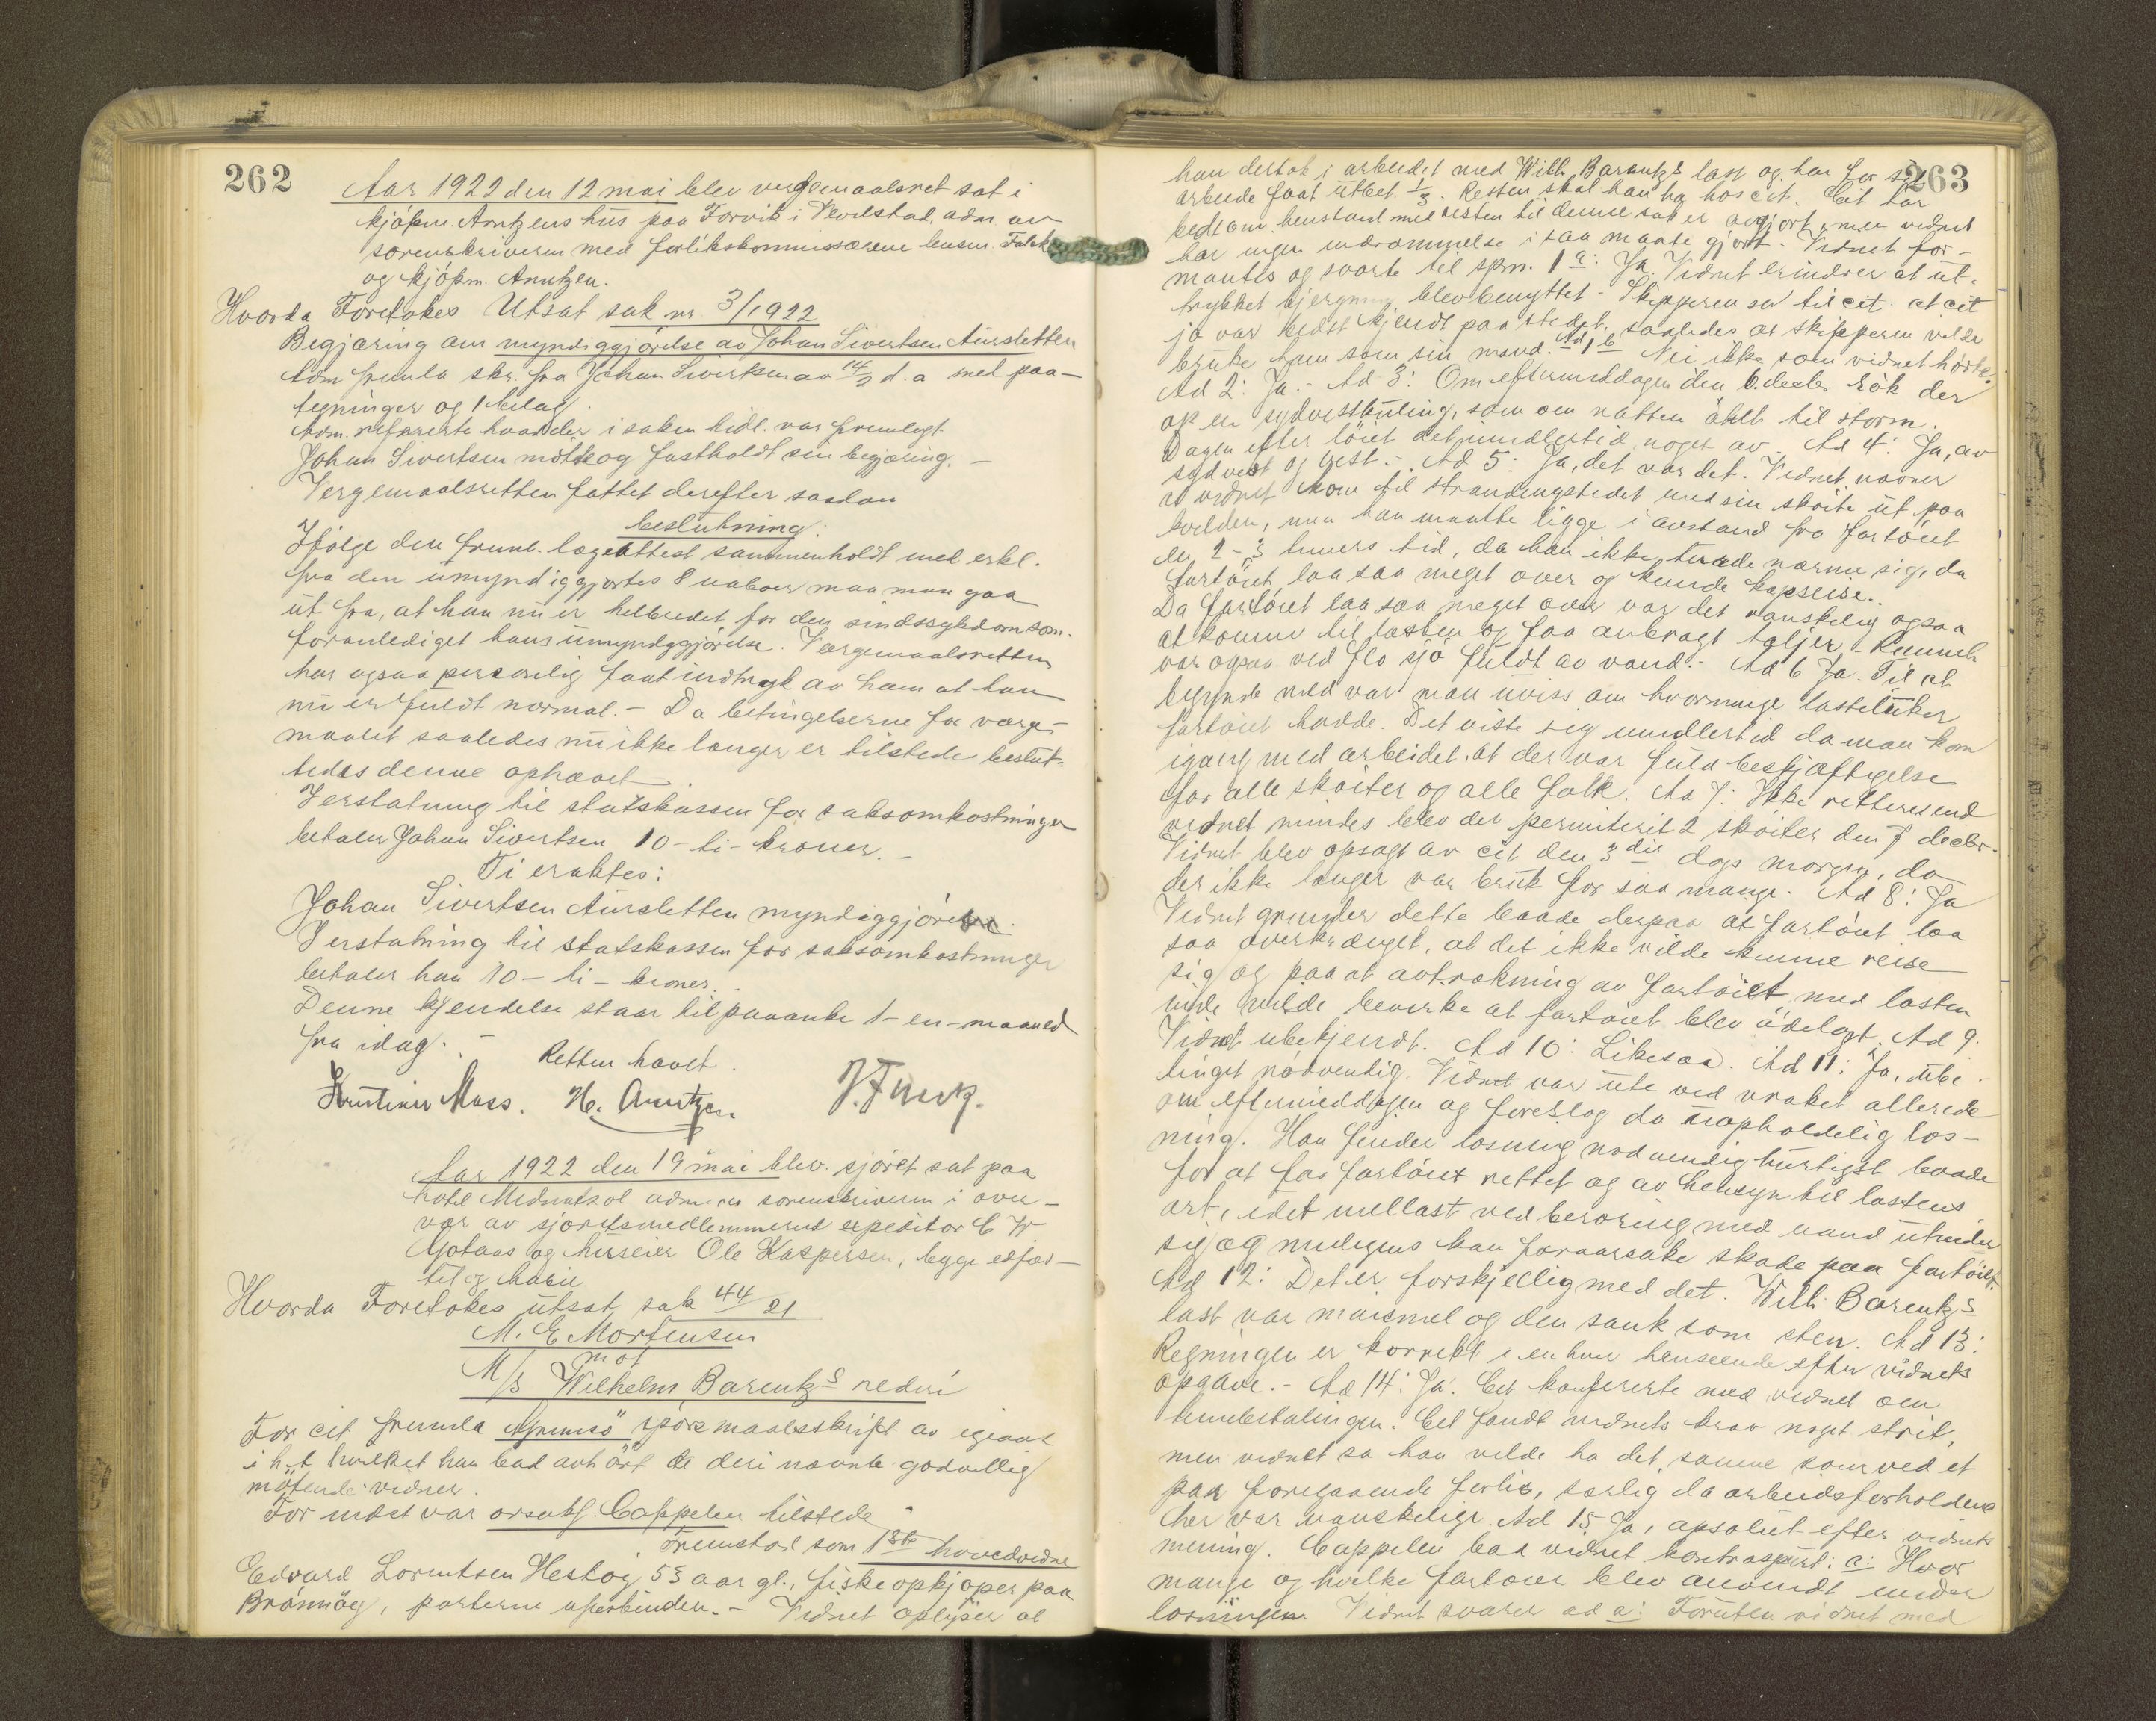 262
Aar 1922 den 12 mai blev vergemaalsret sat i
kjøpm. Arntzens hus paa Forvik i Vevelstad, adm. av
sorenskriveren med forlikskommissærene lensm. Falck
og kjøpm. Arntzen.
Hvorda Foretokes Utsat sak nr. 3/1922
Begjæring om myndiggjørelse av Johan Sivertsen Aursletten
Adm fremla skr. fra Johan Sivertsen av 14/2 d.a med paa-
tegninger og 1 bilag.
Adm. refererte hvad der i saken hidt. var fremlagt.
Johan Sivertsen møtte og fastholdt sin begjæring. –
Vergemaalsretten fattet derefter saadan
beslutning:
Ifølge den freml. lægeattest sammenholdt med erkl.
fra den umyndiggjortes 8 naboer maa man gaa
ut fra, at han nu er helbredet for den sindssykdom som
foranlediget hans umyndiggjørelse. Vergemaalsretten
har ogsaa personlig faat indtryk av ham at han
nu er fuldt normal. – Da betingelserne for verge-
maalet saaledes nu ikke længer er tilstede beslut-
tedes denne ophævet.
I erstatning til statskassen for saksomkostninger
betaler Johan Sivertsen 10 – ti – kroner. –
Ti eraktes:
Johan Sivertsen Aursletten myndiggjøres.
I erstatning til statskassen for saksomkostninger
betaler han 10 – ti – kroner.
Denne kjendelse staar til paaanke 1 – en – maaned
fra idag. –
Retten hævet.
Kristine Mass. H. Arntzen J. Falck.
Aar 1922 den 19 mai blev sjøret sat paa
hotel Midnatsol adm av sorenskriveren i over-
vær av sjøretsmedlemmerne expeditør C W
Gjotaas og huseier Ole Kaspersen, begge
Hvorda Foretokes utsat sak 44/21
M. E Mortensen
mot
M/s Wilhelm Barentzs rederi
For cit fremla spørsmaalsskrift av igaar
i h.t hvilket han bad avhørt de deri nævnte godvillig
møtende vidner.
For indst var orsakf. Cappelen tilstede
Fremstod som 1ste hovedvidne
Edvard Lorentsen Hestøy 53 aar gl., fiskeopkjøper paa
Brønnøy, parterne uforbunden. – Vidnet oplyser at
263
han deltok i arbeidet med Wilh Barentzs last og har for sit
arbeide faat utbet. 1/3. Resten skal han ha hos cit. Cit har
bedt om henstand med resten til denne sak er avgjort, men vidnet
har ingen indrømmelse i saa maate gjort. Vidnet for-
mantes og svarte til spm. 1 a: Ja. Vidnet erindrer at ut-
trykket bjergning blev benyttet – Skipperen sa til cit. at cit
jo var bedst kjendt paa stedet, saaledes at skipperen vilde
bruke ham som sin mand. Ad 1 b Nei ikke som vidnet hørte.
Ad 2: Ja. – Ad 3: Om eftermiddagen den 6. decbr. røk der
op en sydvestkuling, som om natten økte til storm.
Dagen efter løiet det imidlertid noget av. Ad 4: Ja, av
sydvest og vest. – Ad 5: Ja, det var det. Vidnet nævner
at vidnet kom til strandingstedet med sin skøite ut paa
kvelden, men han maatte ligge i avstand fra fartøiet
en 2-3 timers tid, da han ikke turde nærme sig, da
fartøiet laa saa meget over og kunde kapseise.
Da fartøiet laa saa meget over var det vanskelig ogsaa
at komme til lasten og faa anbragt taljer. – Rummet
var ogsaa ved flo sjø fuldt av vand. – Ad 6 Ja. Til at
begynde med var man uviss om hvormange lasteluker
fartøiet hadde. Det viste sig imidlertid da man kom
igang med arbeidet, at der var fuld beskjæftigelse
for alle skøiter og alle folk. Ad 7: Ikke rettere end
vidnet mindes blev der permiterit 2 skøiter den 7 decbr.
Vidnet blev opsagt av cit den 3die dags morgen, da
der ikke længer var bruk for saa mange. Ad 8: Ja
Vidnet grunder dette baade derpaa at fartøiet laa
saa overkrænget, at det ikke vilde kunne reise
sig og paa at avtrækning av fartøiet med lasten
inde vilde bevirke at fartøiet blev ødelagt. Ad 9.
Vidnet ubekjendt. Ad 10: Likesaa. Ad 11: Ja, ube-
tinget nødvendig. Vidnet var ute ved vraket allerede
om eftermiddagen og foreslog da uopholdelig los-
ning. Han finder losning nødvendig hurtigst baade
for at faa fartøiet rettet og av hensyn til lastens
art, idet mellast ved berøring med vand utvider
sig og muligens kan foraarsake skade paa fartøiet.
Ad 12: Det er forskjellig med det. Wilh. Barentzs
last var maismel og den sank som sten. Ad 13:
Regningen er korrekt i enhver henseende efter vidnets
opgave. – Ad 14: Ja. Cit konfererte med vidnet om
timebetalingen. Cit fandt vidnets krav noget strit,
men vidnet sa han vilde ha det samme som ved et
paa foregaaende forlis, særlig da arbeidsforholdene
her var vanskelige. Ad 15 Ja, absolut efter vidnets
mening. Cappelen bad vidnet kontraspurt: a: Hvor
mange og hvilke fartøier blev anvendt under
losningen. Vidnet svarer ad a: Foruten vidnet med